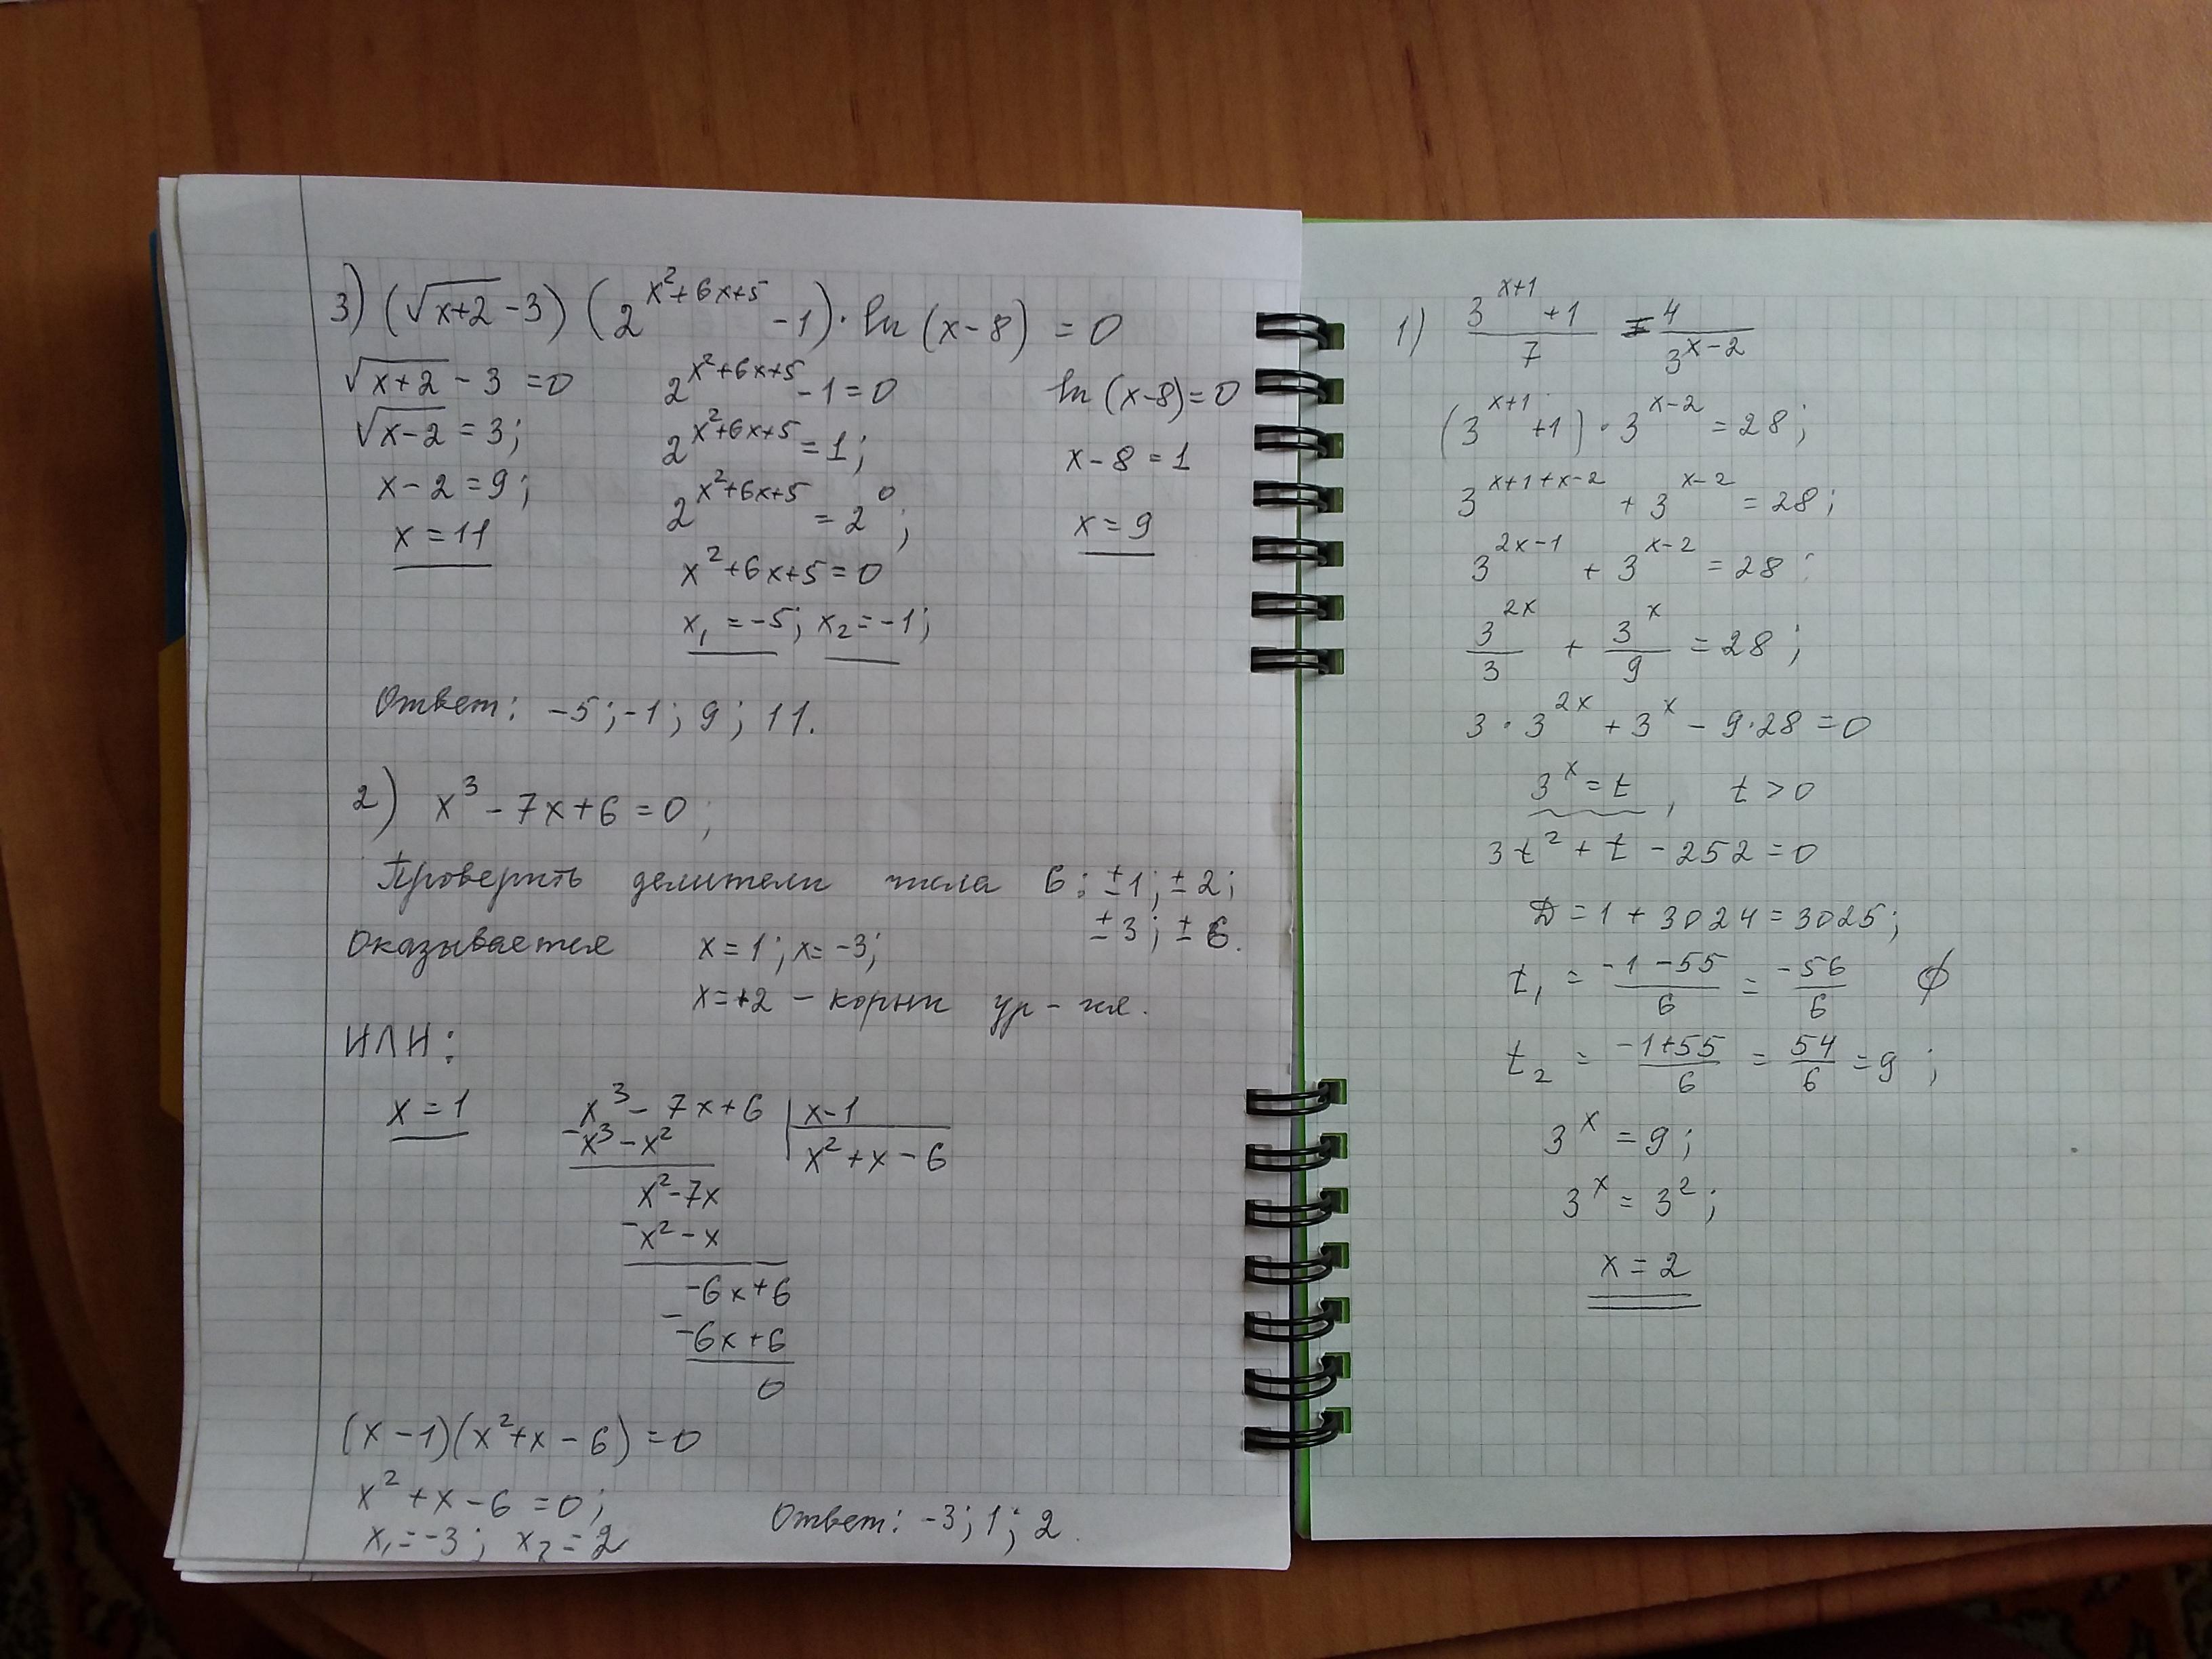 3) (√(x+2) - 3) (2^(x²+6x+5) - 1) · ln (x-8) = 0
√(x+2) - 3 = 0
√(x-2) = 3;
x - 2 = 9;
x = 11
2^(x²+6x+5) - 1 = 0
2^(x²+6x+5) = 1;
2^(x²+6x+5) = 2^0;
x²+6x+5 = 0
x₁ = -5; x₂ = -1;
ln (x-8) = 0
x - 8 = 1
x = 9
Ответ: -5; -1; 9; 11.
2) x³ - 7x + 6 = 0;
Проверить делители числа 6: ±1; ±2;
±3; ±6.
Оказывается x = 1; x = -3;
x = +2 – корни ур-ия.
ИЛИ:
x = 1
x³ - 7x + 6 | x-1
- x³ - x² | x² + x - 6
x² - 7x
- x² - x
-6x + 6
- -6x + 6
0
(x - 1)(x² + x - 6) = 0
x² + x - 6 = 0;
x₁ = -3; x₂ = 2
Ответ: -3; 1; 2.
1) (3^(x+1) + 1)/7 = 4/3^(x-2)
(3^(x+1) + 1) · 3^(x-2) = 28;
3^(x+1+x-2) + 3^(x-2) = 28;
3^(2x-1) + 3^(x-2) = 28;
3^(2x)/3 + 3^x/9 = 28;
3 · 3^(2x) + 3^x - 9·28 = 0
3^x = t, t > 0
3t² + t - 252 = 0
D = 1 + 3024 = 3025;
t₁ = (-1 - 55)/6 = -56/6 ∅
t₂ = (-1+55)/6 = 54/6 = 9;
3^x = 9;
3^x = 3²;
x = 2